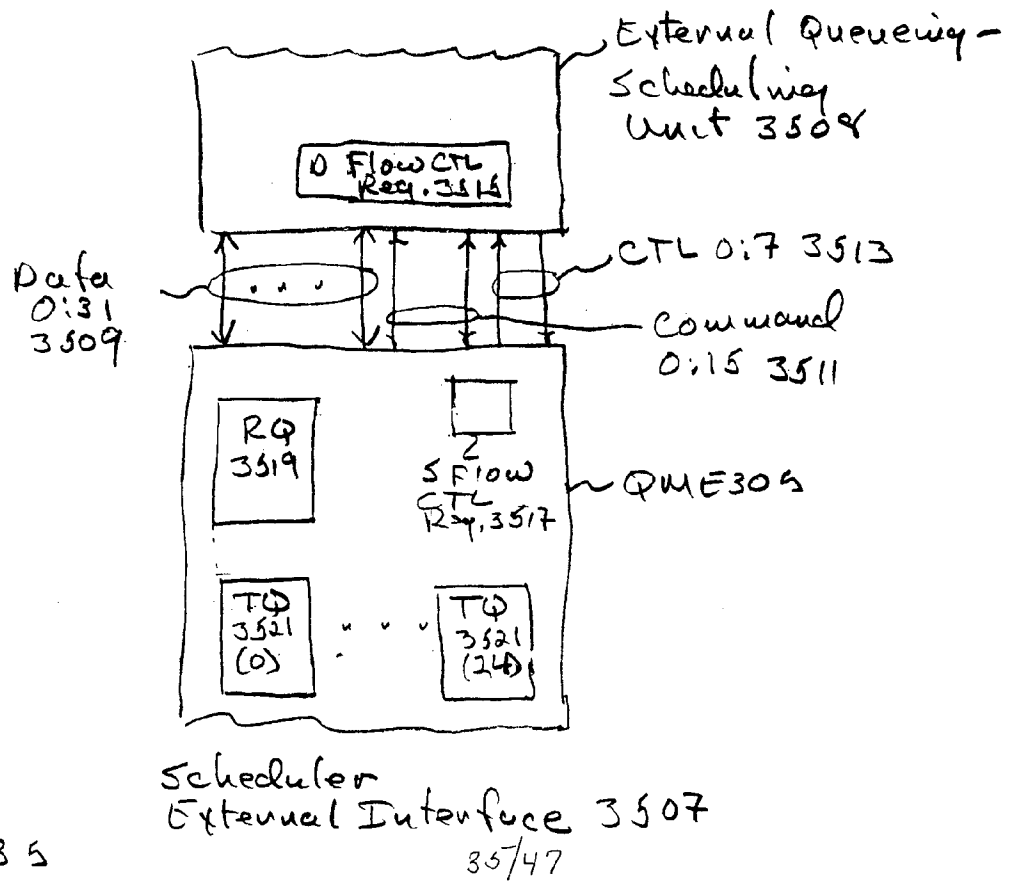 External Queueing-
Scheduling
Unit 3508
D Flow CTL
Reg. 3515
CTL 0:7 3513
Data
0:31
3509
Command
0:15 3511
RQ
3519
S Flow
CTL
Reg. 3517
QME305
TQ
3521
(0)
TQ
3521
(24)
Scheduler
External Interface 3507
35/47
3 5